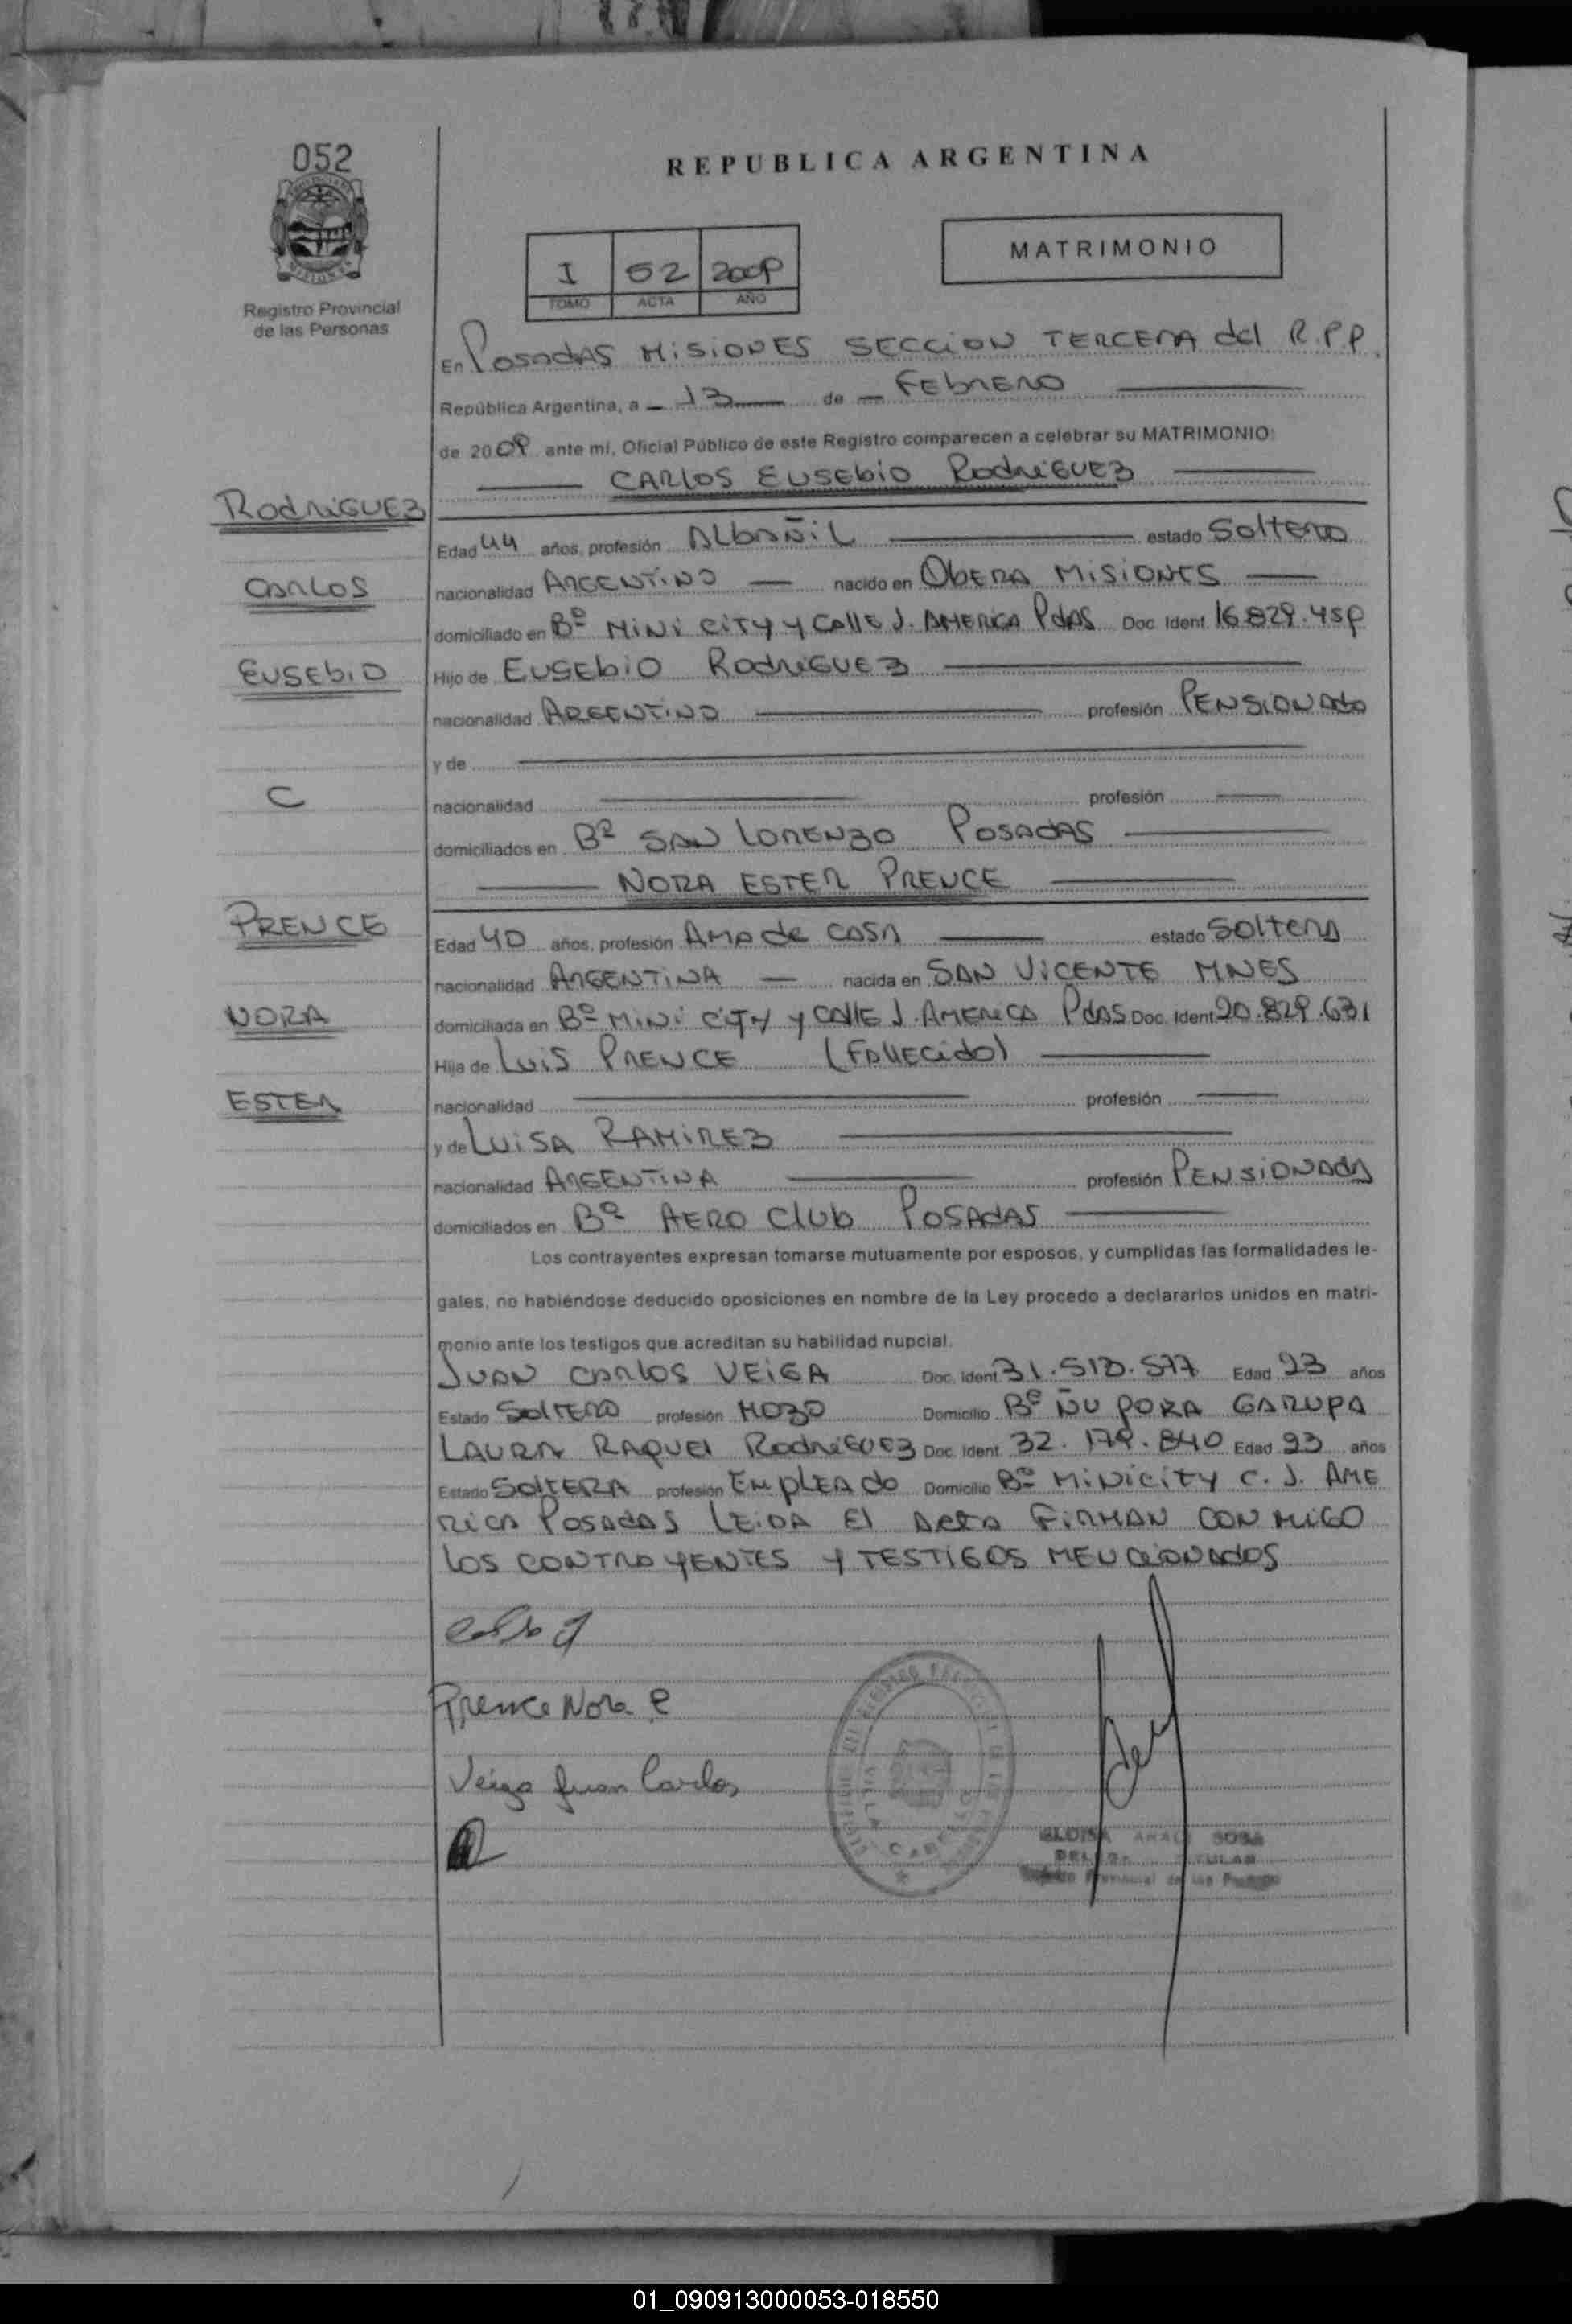 052
REPUBLICA ARGENTINA
MATRIMONIO
I 52 2009
TOMO ACTA AÑO
Registro Provincial
de las Personas
En Posadas MISIONES SECCION TERCERA del R.P.P.
República Argentina, a 13 de FEbRERO
de 2009 ante mí, Oficial Público de este Registro comparecen a celebrar su MATRIMONIO:
CARlos EUSEbio RodRiGUEz
RodRiGUEz
Edad 44 años, profesión AlbAÑiL estado SolteRo
CARLOS
nacionalidad ARGENTINO nacido en ObERA MISIONES
domiciliado en Bº MiNi CiTY y CAllE J. AMERICA PdAS Doc. Ident. 16.829.459
EUSEbiO
Hijo de EUSEbiO RodRiGUEz
nacionalidad ARGENTINO profesión PENSIONAdo
y de
C
nacionalidad profesión
domiciliados en Bº SAN LORENZO POSAdAS
NORA ESTER PRENCE
PRENCE
Edad 40 años, profesión AMA de CASA estado SolteRA
nacionalidad ARGENTINA nacida en SAN VICENTE MNES
NORA
domiciliada en Bº MiNi CiTY y CAllE J. AMERICA PdAS Doc. Ident. 20.829.631
Hija de LUIS PRENCE (FAllEcido)
ESTER
nacionalidad profesión
y de LUISA RAMIREZ
nacionalidad ARGENTINA profesión PENSIONAdA
domiciliados en Bº AERO Club POSAdAS
Los contrayentes expresan tomarse mutuamente por esposos, y cumplidas las formalidades le-
gales, no habiéndose deducido oposiciones en nombre de la Ley procedo a declararlos unidos en matri-
monio ante los testigos que acreditan su habilidad nupcial.
JUAN CARLOS VEIGA Doc. Ident. 31.513.577 Edad 23 años
Estado SOLTERO profesión MOZO Domicilio Bº ÑU PORA GARUPA
LAURA RAQUEl RodRiGUEz Doc. Ident. 32.179.840 Edad 23 años
Estado SOLTERA profesión EMPLEAdo Domicilio Bº MiNiCiTY C. J. AME
RICA POSAdAS LEIDA El ACTA FIRMAN CONMIGO
los CONTRAYENTES y TESTIGOS MENCIONAdos
Prence Nora E
Veiga Juan Carlos
SOSA
TITULAR
01_090913000053-018550